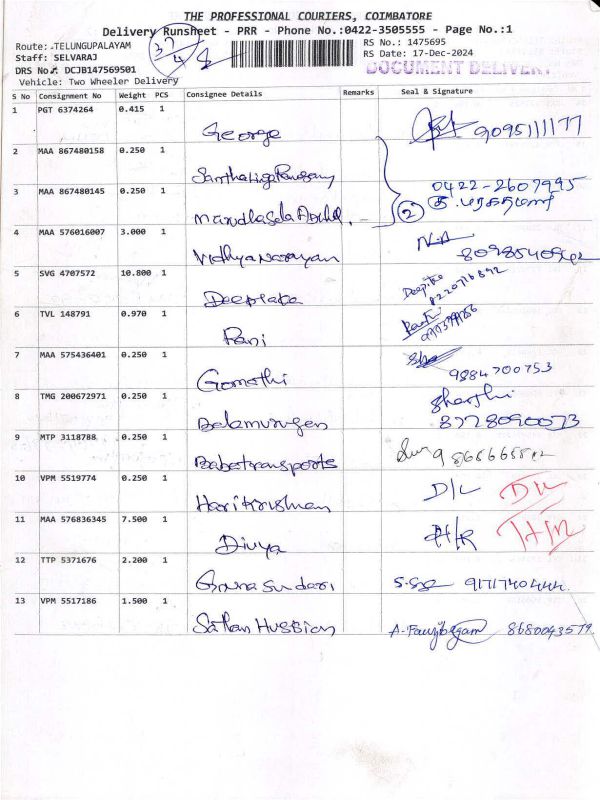 THE PROFESSIONAL COURIERS, COIMBATORE
Delivery Runsheet - PRR - Phone No.:0422-3505555 - Page No.:1
Route: TELUNGUPALAYAM
RS No.: 1475695
Staff: SELVARAJ
RS Date: 17-Dec-2024
DRS No.: DCJB147569501
DOCUMENT DELIVERY
Vehicle: Two Wheeler Delivery
S No Consignment No Weight PCS Consignee Details Remarks Seal & Signature
1 PGT 6374264 0.415 1 George 9095111177
2 MAA 867480158 0.250 1
0422-2607995
3 MAA 867480145 0.250 1 2
4 MAA 576016007 3.000 1 Vidhya Narayan N.A
5 SVG 4707572 10.800 1 Deepika Deepika
6 TVL 148791 0.970 1 Rani
7 MAA 575436401 0.250 1 Gomathi 9884700753
8 TMG 200672971 0.250 1 Balamurugan
8778090073
9 MTP 3118788 0.250 1 Babatransports
10 VPM 5519774 0.250 1 Harikrishnan D/L D/L
11 MAA 576836345 7.500 1 Divya H/R
12 TTP 5371676 2.200 1 9171740444.
13 VPM 5517186 1.500 1 Sathan Hussian 8680043579